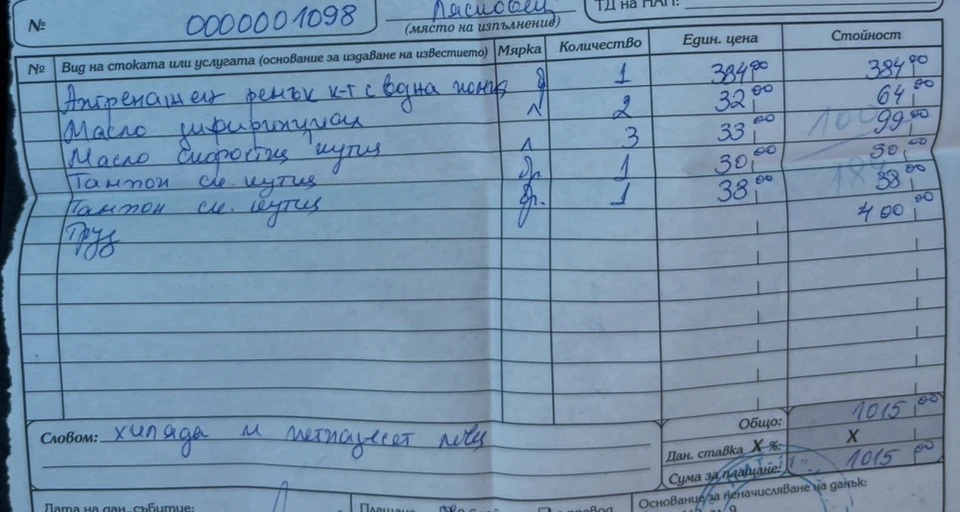 № 0000001098 Лясковец ТД на НАП:
(място на изпълнение)
№ Вид на стоката или услугата (основание за издаване на известието) Мярка Количество Един. цена Стойност
Ангренажен ремък к-т с водна помпа 1 384,00 384,00
Масло диференциал л 2 32,00 64,00
Масло скоростна кутия л 3 33,00 99,00
Тампон ск. кутия бр. 1 30,00 30,00
Тампон ск. кутия бр. 1 38,00 38,00
Труд 400,00
Общо: 1015,00
Словом: хиляда и петнадесет лева
Дан. ставка X %: X
Сума за плащане: 1015,00
Дата на дан. събитие: Плащане Основание за неначисляване на данък: